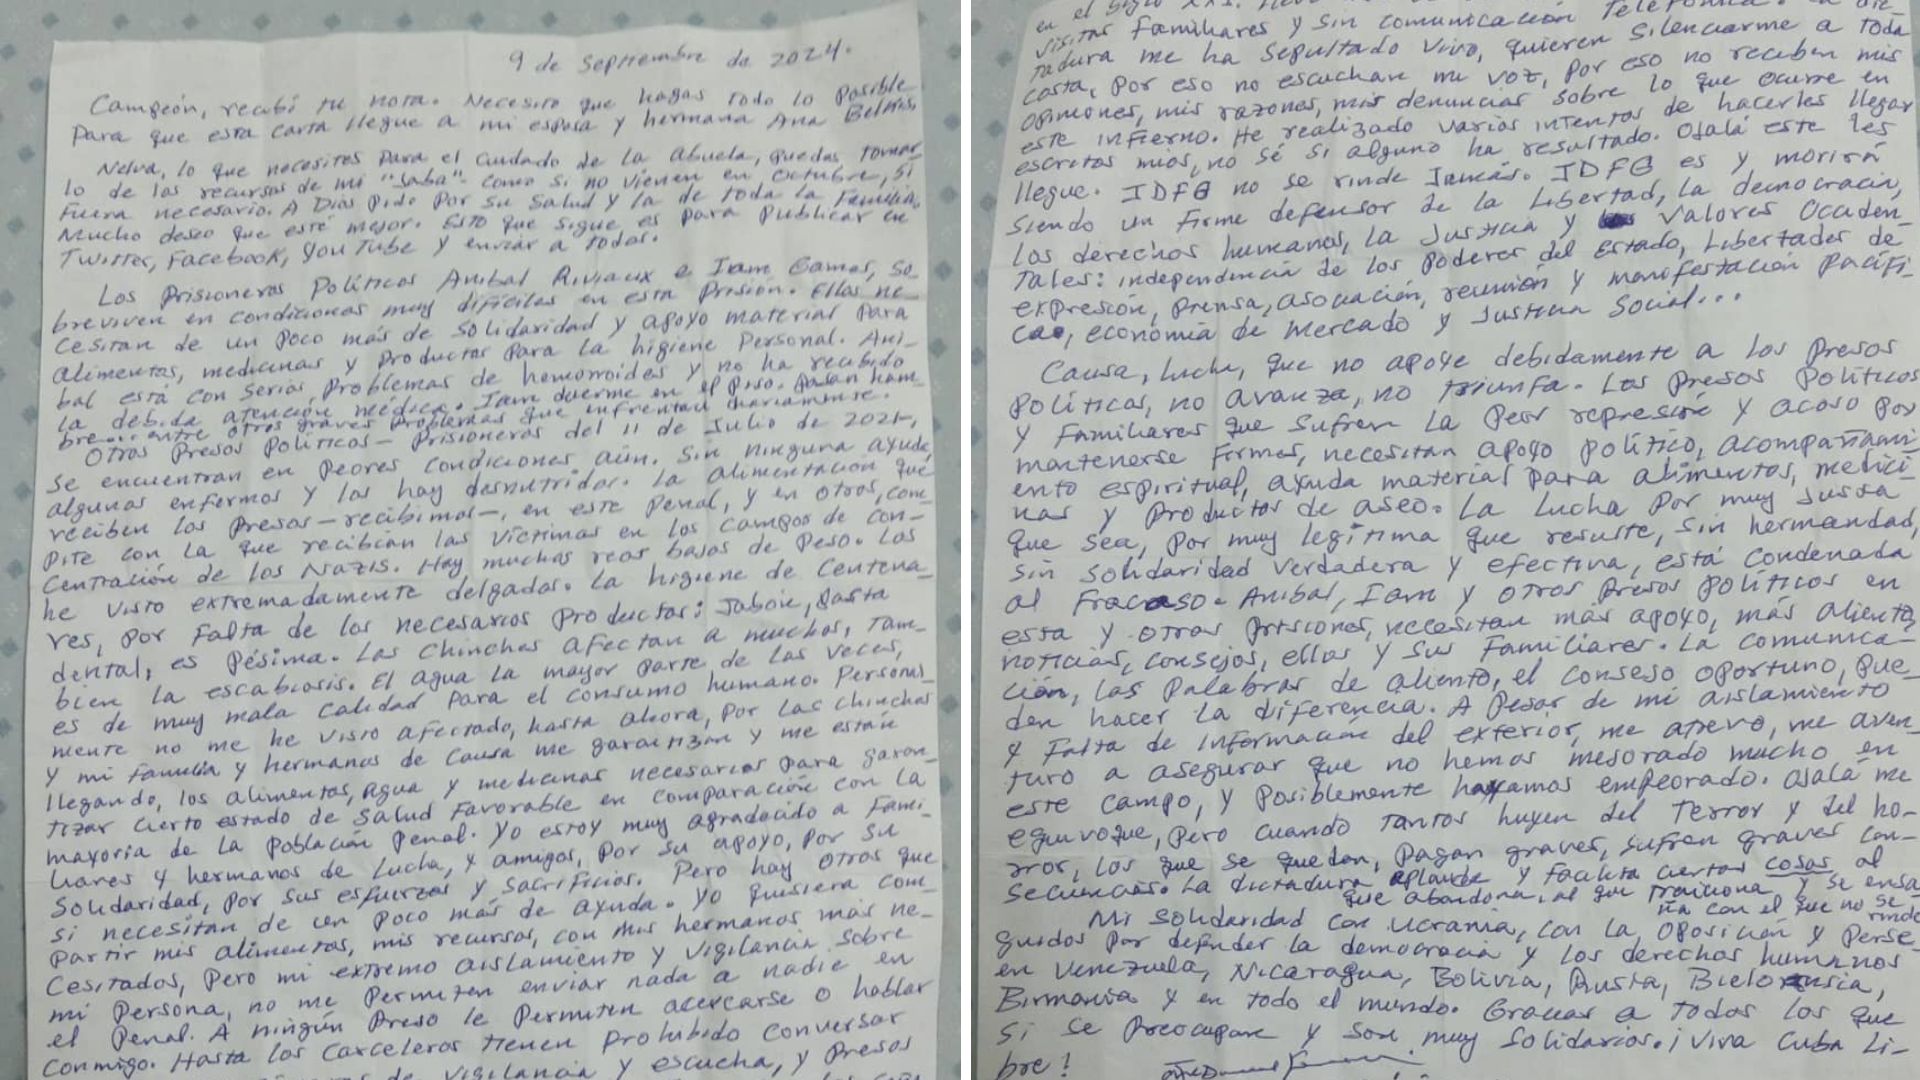 9 de Septiembre de 2024.
Campeón, recibí tu nota. Necesito que hagas todo lo posible
para que esta carta llegue a mi esposa y hermana Ana Belkis,
Nelva, lo que necesites para el cuidado de la abuela, puedes tomar
lo de los recursos de mi "Jaba". Como si no vienen en Octubre, si
fuera necesario. A Dios pido por su salud y la de toda la familia,
Mucho deseo que esté mejor. Esto que sigue es para publicar en
Twitter, Facebook, YouTube y enviar a todos.
Los Prisioneros Políticos Aníbal Riviaux e Iam Games, so-
breviven en condiciones muy difíciles en esta Prisión. Ellos ne-
cesitan de un poco más de solidaridad y apoyo material para
alimentos, medicinas y productos para la higiene personal. Ani-
bal está con serios problemas de hemorroides y no ha recibido
la debida atención médica. Iam duerme en el piso. Pasan ham-
bre... entre otros graves problemas que enfrentan diariamente.
Otros Presos Políticos - Prisioneros del 11 de Julio de 2021,
se encuentran en peores condiciones aún. Sin ninguna ayuda,
algunos enfermos y los hay desnutridos. La alimentación que
reciben los presos - recibimos -, en este penal, y en otros, com-
pite con la que recibían las víctimas en los campos de con-
centración de los Nazis. Hay muchos reos bajos de peso. Los
he visto extremadamente delgados. La higiene de centena-
res, por falta de los necesarios productos: Jabón, pasta
dental, es pésima. Las chinches afectan a muchos, tam-
bién la escabiosis. El agua la mayor parte de las veces,
es de muy mala calidad para el consumo humano. Personal-
mente no me he visto afectado, hasta ahora, por las chinches
y mi familia y hermanos de causa me garantizan y me están
llegando, los alimentos, agua y medicinas necesarios para garan-
tizar cierto estado de salud favorable en comparación con la
mayoría de la población penal. Yo estoy muy agradecido a fami-
liares y hermanos de lucha, y amigos, por su apoyo, por su
solidaridad, por sus esfuerzos y sacrificios. Pero hay otros que
si necesitan de un poco más de ayuda. Yo quisiera com-
partir mis alimentos, mis recursos, con mis hermanos más ne-
cesitados, pero mi extremo aislamiento y vigilancia sobre
mi persona, no me permiten enviar nada a nadie en
el penal. A ningún preso le permiten acercarse o hablar
conmigo. Hasta los carceleros tienen prohibido conversar
de vigilancia y escucha, y presos
en el siglo XXI.
visitas familiares y sin comunicación telefónica. La dic-
tadura me ha sepultado vivo, quieren silenciarme a toda
costa, por eso no escuchan mi voz, por eso no reciben mis
opiniones, mis razones, mis denuncias sobre lo que ocurre en
este infierno. He realizado varios intentos de hacerles llegar
escritos míos, no sé si alguno ha resultado. Ojalá este les
llegue. JDFG no se rinde Jamás. JDFG es y morirá
siendo un firme defensor de la libertad, la democracia,
los derechos humanos, la justicia y valores Occiden-
tales: independencia de los poderes del estado, libertades de
expresión, prensa, asociación, reunión y manifestación pacífi-
cas, economía de mercado y Justicia Social...
Causa, lucha, que no apoye debidamente a los presos
políticos, no avanza, no triunfa. Los presos políticos
y familiares que sufren la peor represión y acoso por
mantenerse firmes, necesitan apoyo político, acompañami-
ento espiritual, ayuda material para alimentos, medici-
nas y productos de aseo. La lucha por muy justa
que sea, por muy legítima que resulte, sin hermandad,
sin solidaridad verdadera y efectiva, está condenada
al fracaso. Aníbal, Iam y otros presos políticos en
esta y otras prisiones, necesitan más apoyo, más aliento,
noticias, consejos, ellos y sus familiares. La comunica-
ción, las palabras de aliento, el consejo oportuno, pue-
den hacer la diferencia. A pesar de mi aislamiento
y falta de información del exterior, me atrevo, me aven-
turo a asegurar que no hemos mejorado mucho en
este campo, y posiblemente hayamos empeorado. Ojalá me
equivoque, pero cuando tantos huyen del terror y del ho-
rror, los que se quedan, pagan graves, sufren graves con-
secuencias. La dictadura aplaude y facilita ciertas cosas al
que abandona, al que traiciona y se ensa-
ña con el que no se
rinde
Mi solidaridad con Ucrania, con la oposición y perse-
guidos por defender la democracia y los derechos humanos
en Venezuela, Nicaragua, Bolivia, Rusia, Bielorrusia,
Birmania y en todo el mundo. Gracias a todos los que
si se preocupan y son muy solidarios. ¡Viva Cuba Li-
bre!